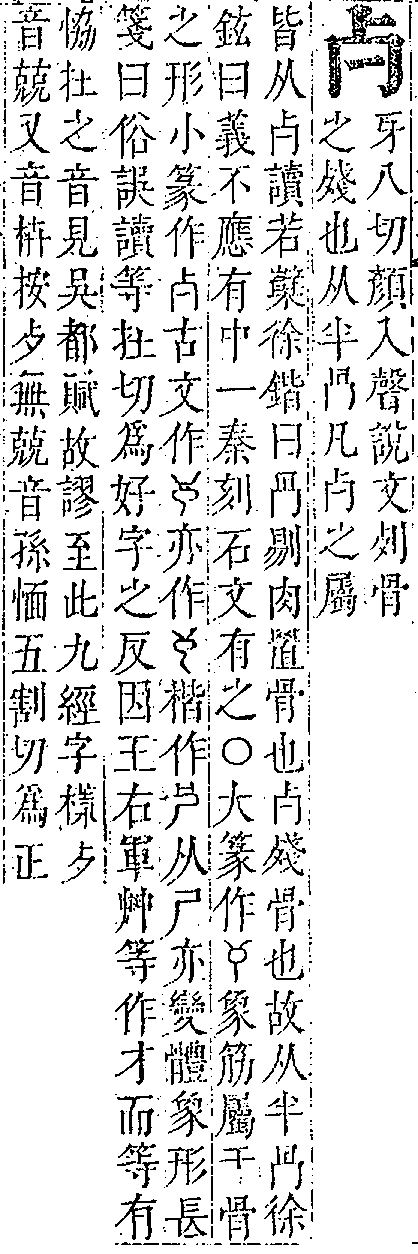 𣦵
牙八切顏入聲說文𠛱骨
之殘也从半冎凡𣦵之屬
皆从𣦵讀若櫱徐鍇曰冎剔肉置骨也𣦵殘骨也故从半冎徐
鉉曰義不應有中一秦刻石文有之○大篆作象筋屬于骨
之形小篆作𣦵古文作亦作楷作从尸亦變體象形長
箋曰俗誤讀等在切爲好字之反因王右軍艸等作才而等有
恊在之音見吳都賦故謬至此九經字樣歹
音兢又音枿按歹無兢音孫愐五割切爲正